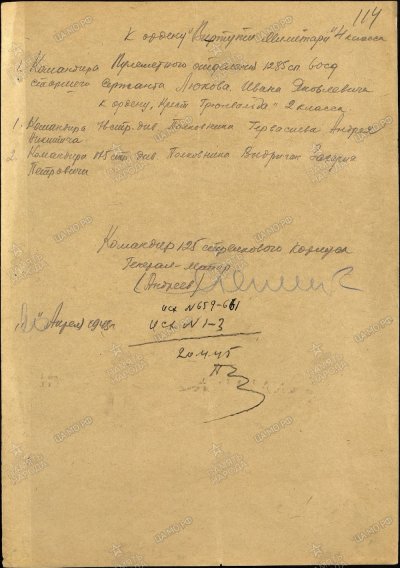 114
К ордену "Виртути Милитари" 4 класса
1. Командира Пулеметного отделения 1285 сп 60 сд
старшего Сержанта Люкова Ивана Яковлевича
к ордену "Крест Грюнвальда" 2 класса
1. Командира 76 стр. див. Полковника Гервасиева Андрея
Никитича
2. Командира 175 стр. див Полковника Выдриган Захария
Петровича
Командир 125 стрелкового корпуса
Генерал-майор
(Андреев)
" Апреля 1945г.
исх N 659-661
исх N 1-3
20.4.45